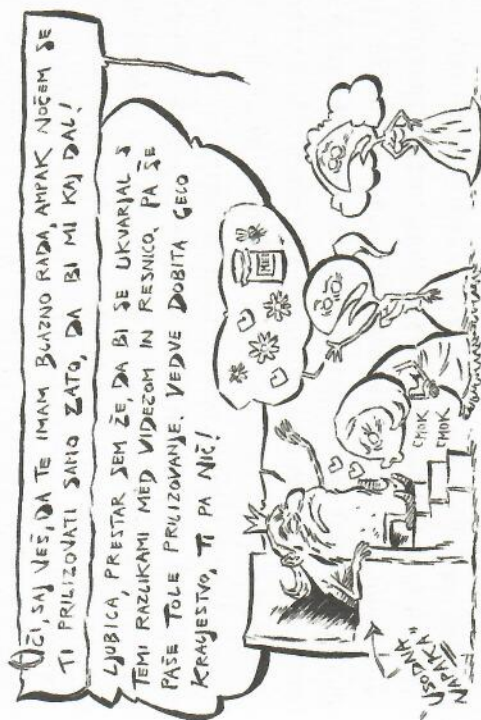 OČI, SAJ VEŠ, DA TE IMAM BLAZNO RADA, AMPAK NOČEM SE
TI PRILIZOVATI SAMO ZATO, DA BI MI KAJ DAL!
LJUBICA, PRESTAR SEM ŽE, DA BI SE UKVARJAL S
TEMI RAZLIKAMI MED VIDEZOM IN RESNICO, PA ŠE
PAŠE TOLE PRILIZOVANJE. VEDVE DOBITA CELO
KRALJESTVO, TI PA NIČ!
MED
CMOK
CMOK
"USODNA
NAPAKA"